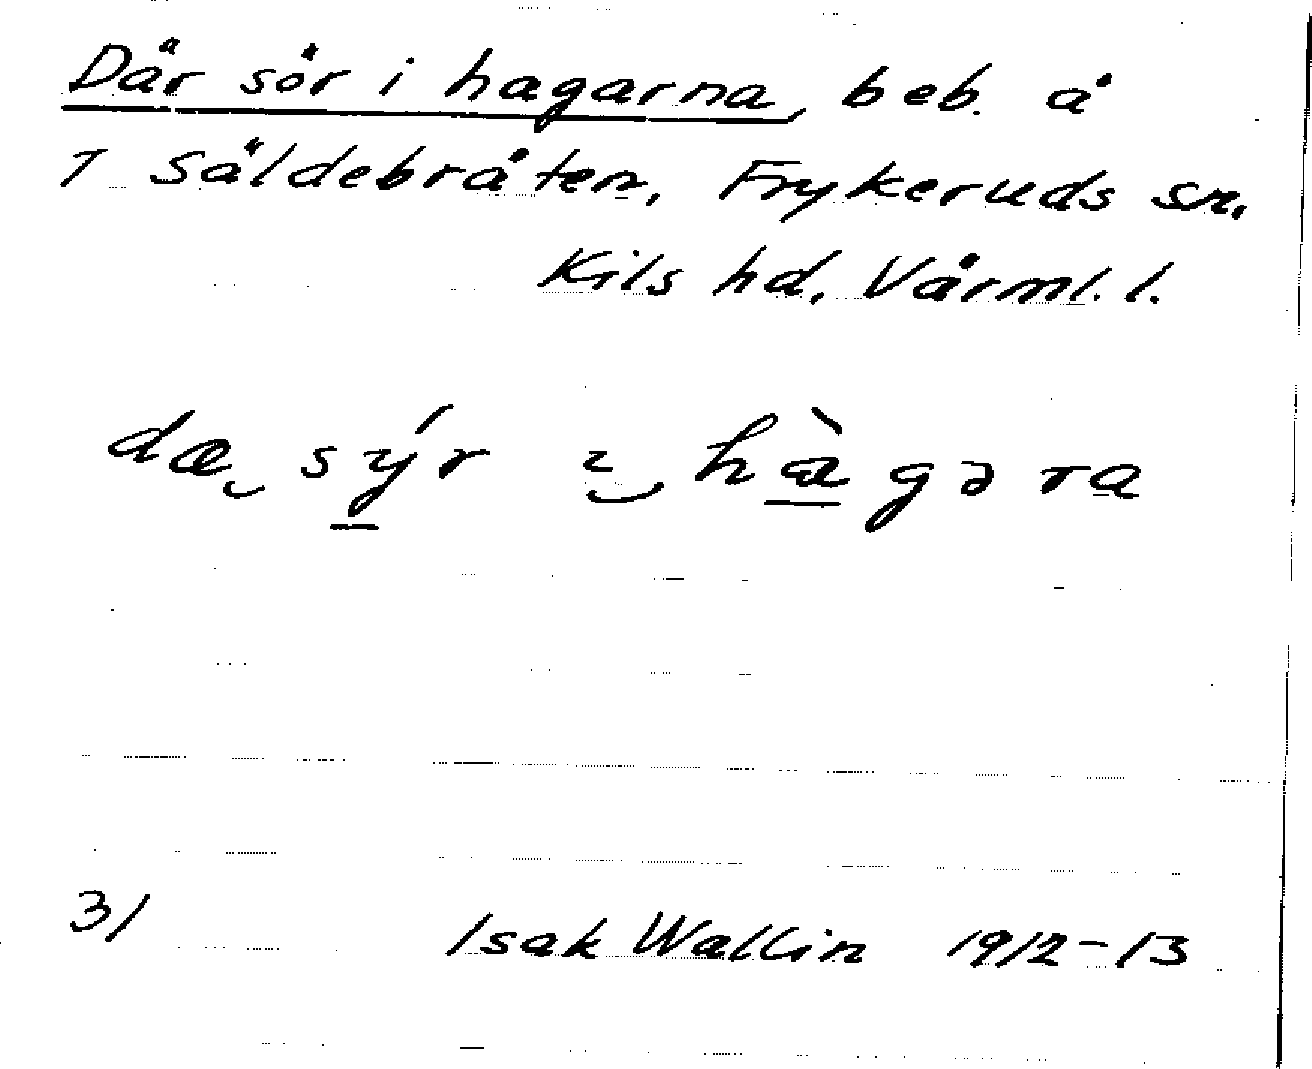 Där sör i hagarna, beb. å
T Säldebråten, Frykeruds sn.
Kils hd, Värml. l.
dæ sýr ı hàgəra
31
Isak Wallin 1912-13